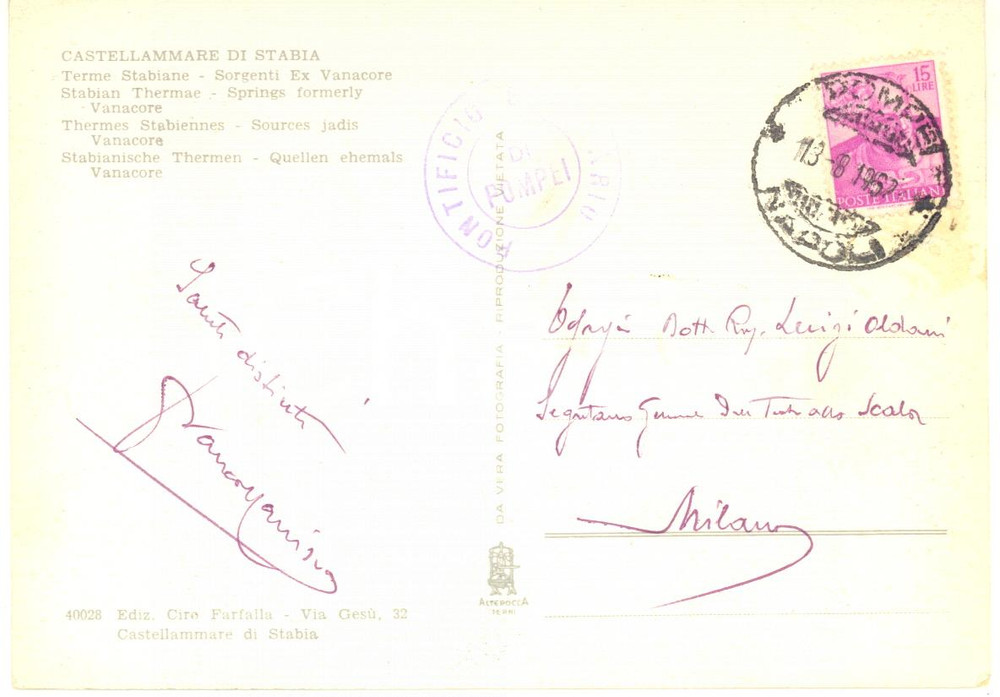 CASTELLAMMARE DI STABIA
Terme Stabiane - Sorgenti Ex Vanacore
Stabian Thermae - Springs formerly
Vanacore
Thermes Stabiennes - Sources jadis
Vanacore
Stabianische Thermen - Quellen ehemals
Vanacore
PONTIFICIO
DI
POMPEI
15
LIRE
POSTE ITALIANE
POMPEI
13-8 1962
NAPOLI
Saluti
distinti
Egregio Dott. Rag. Luigi Oldani
Segretario Generale Teatro alla Scala
Milano
DA VERA FOTOGRAFIA - RIPRODUZIONE VIETATA
ALTEROCCA
TERNI
40028 Ediz. Ciro Farfalla - Via Gesù, 32
Castellammare di Stabia